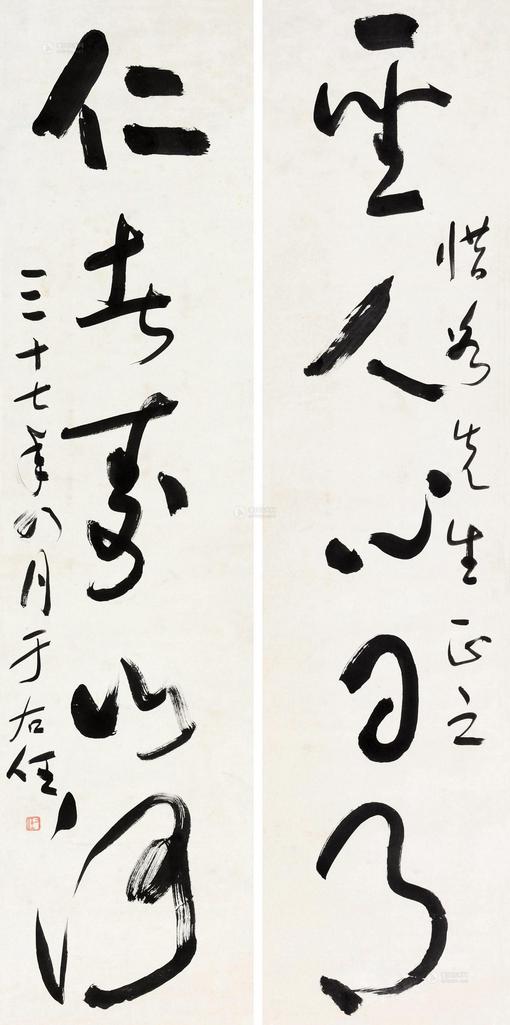 惜先生正之
聖人心日月
仁者壽山河
三十七年四月于右任